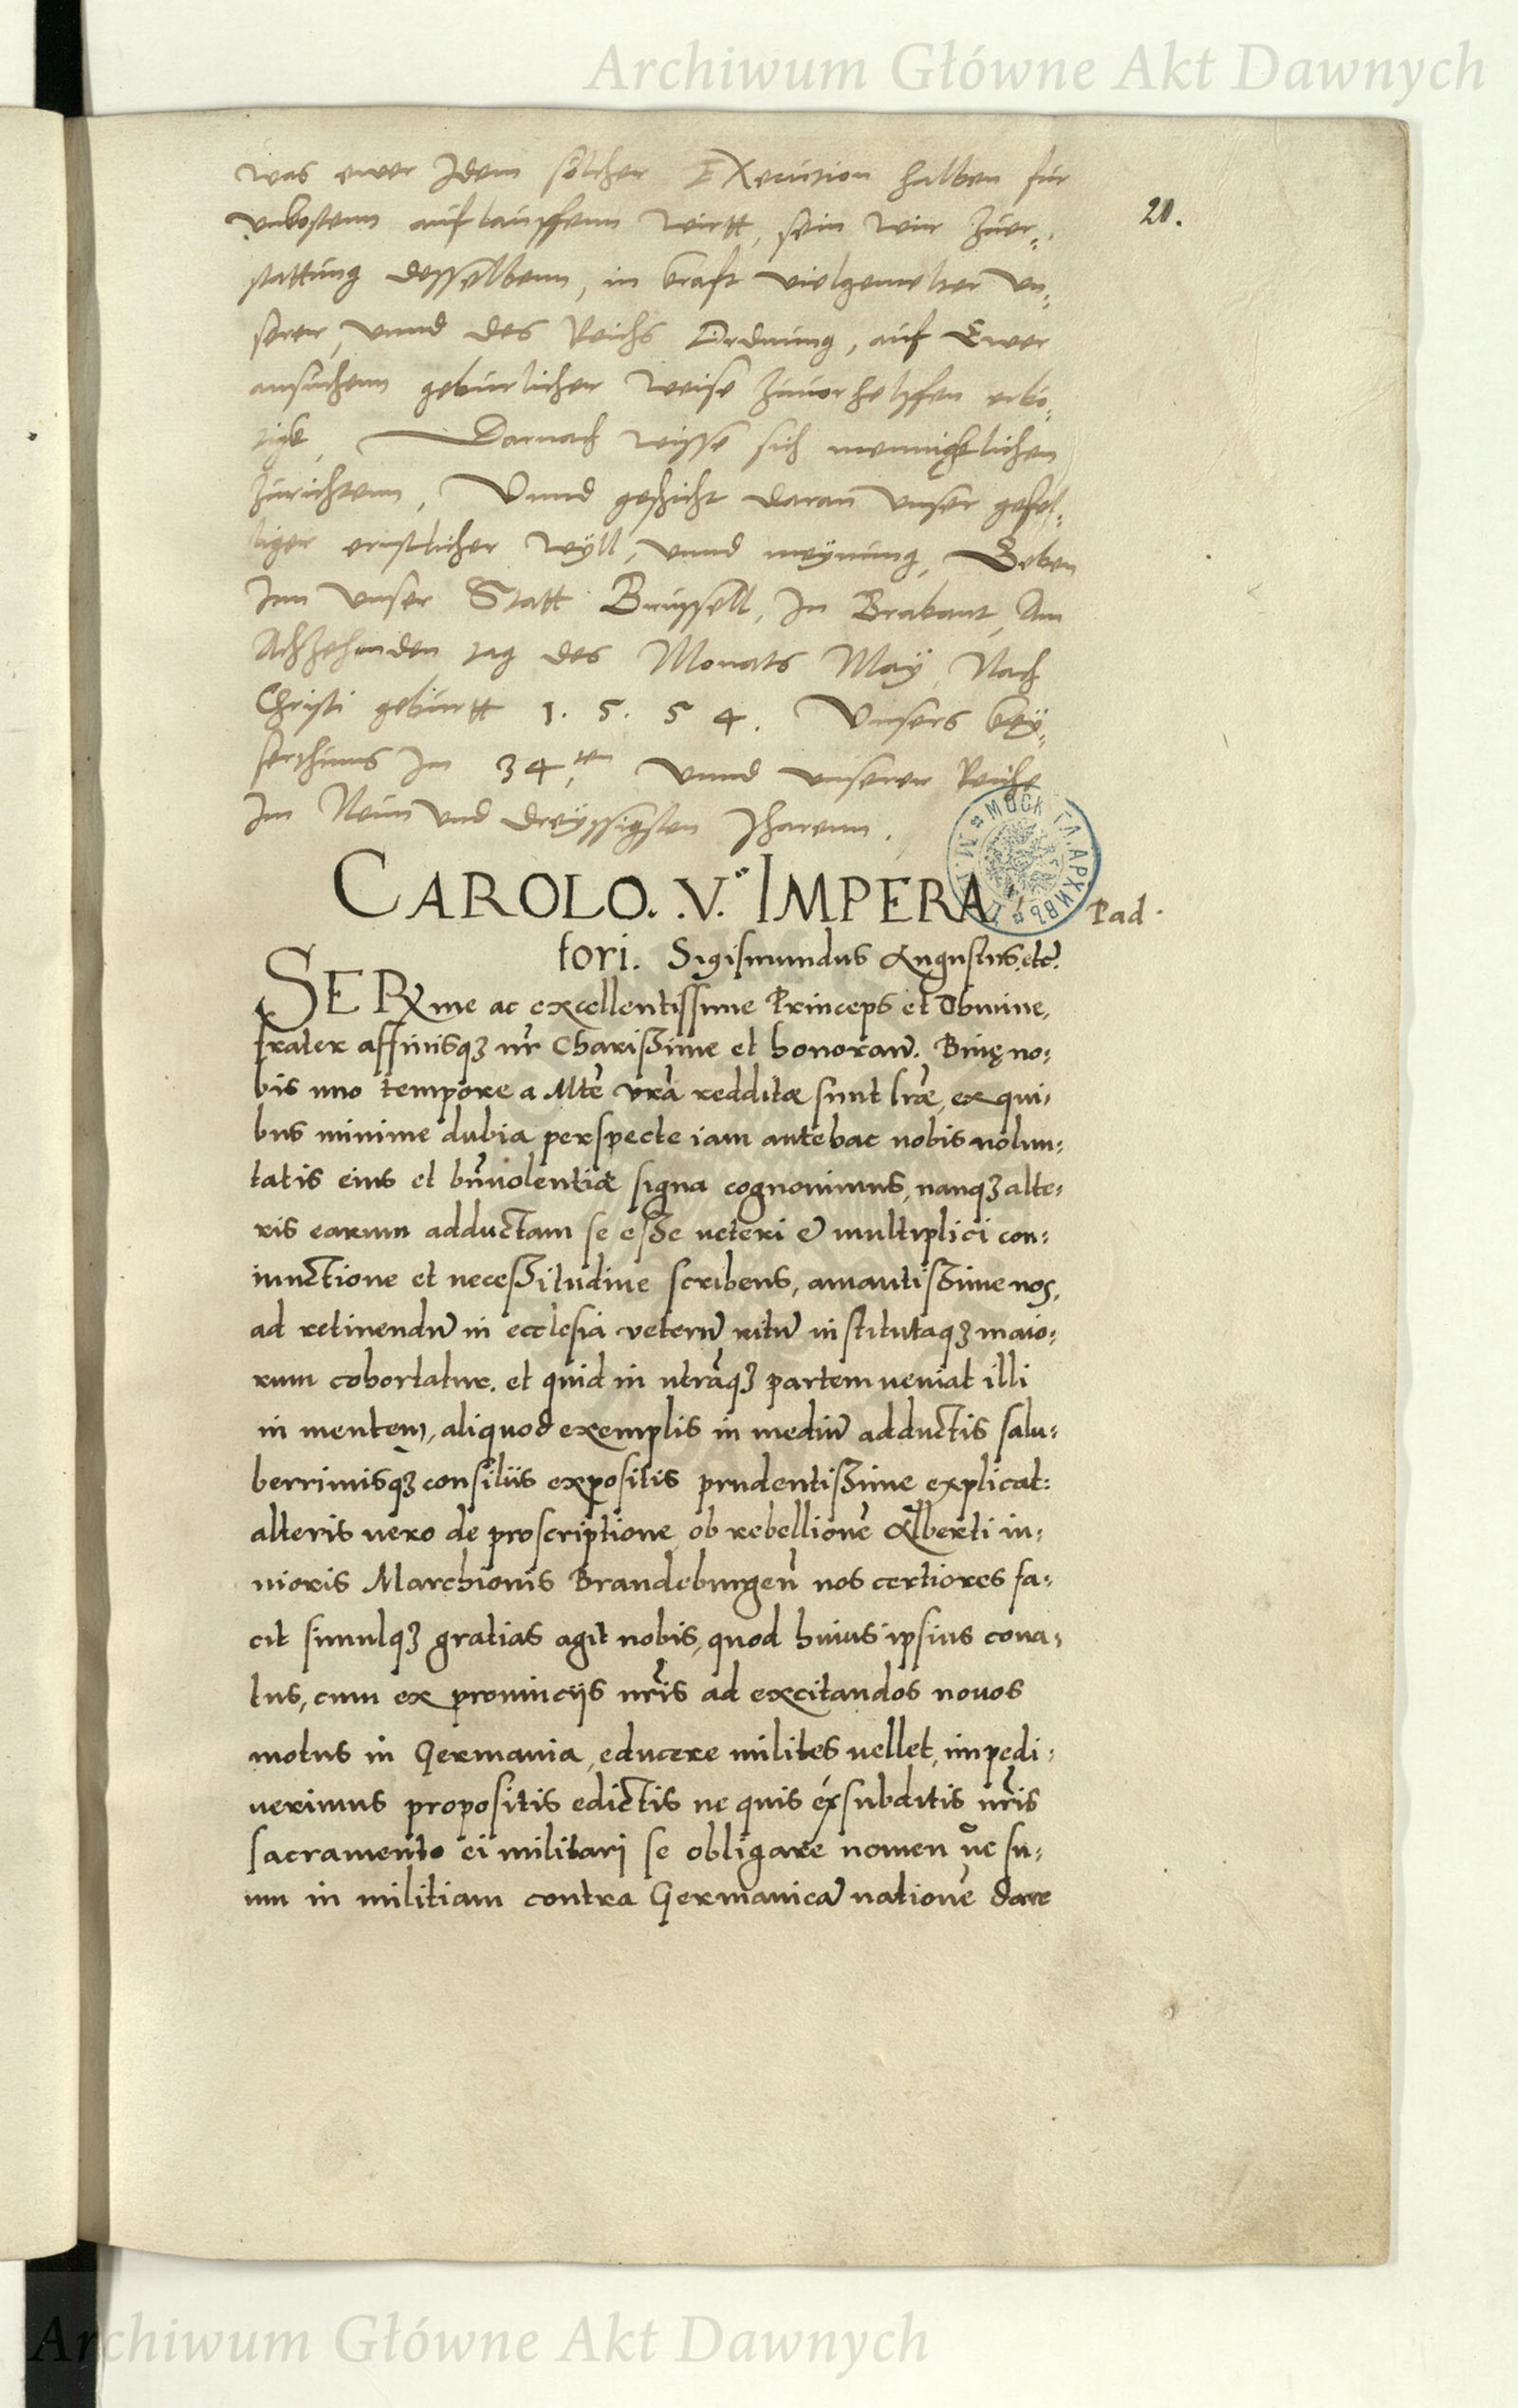 Archiwum Główne Akt Dawnych
was ewer Idem sölcher EXecution halben für
vnkostenn auflauffenn wirtt, sein wir zuer=
stattung desselbenn, in krafft vielgemelter vn=
serer, vnnd des Reichs Ordnung, auf Ewer
ansuchenn geburlicher weise zuuorhelffen erbo=
tigk, Darnach wisse sich menniglichen
zurichtenn, Vnnd geschicht daran vnser gefel=
liger ernstlicher wyll, vnnd meynung, Geben
Inn vnser Statt Brüssell, In Brabant, Am
Achtzehenden tag des Monats Maÿ, Nach
Christi geburtt 1. 5. 5 4. Vnsers keÿ=
serthums Im 34.ten vnnd vnserer Reiche
Im Neun vnd dreÿssigsten Jharenn.
20.
CAROLO. .V.to IMPERA=
tori. Sigismundus Augustus, etc.
Pad.
МОСК. ГЛ. АРХИВЪ
SERme ac excellentissime Princeps et Domine,
frater affinisqz nr Charissime et honoran. Binę no=
bis uno tempore a Mte vra redditæ sunt lræ, ex qui=
bus minime dubia perspectę iam antehac nobis uolun=
tatis eius et bnuolentiæ signa cognouimus, nanqz alte=
ris earum adductam se esse ueteri & multiplici con=
iunctione et necessitudine scribens, amantissime nos,
ad retinendu in ecclesia veteru ritu institutaqz maio=
rum cohortatur. et quid in utraqz partem ueniat illi
in mentem, aliquod exemplis in mediu adductis salu=
berrimisqz consiliis expositis prudentissime explicat:
alteris uero de proscriptione ob rebellione Alberti iu=
nioris Marchionis Brandeburgen nos certiores fa=
cit simulqz gratias agit nobis, quod huius ipsius cona=
tus, cum ex prouincijs nris ad excitandos nouos
motus in Germania, educere milites uellet, impedi=
uerimus propositis edictis ne quis ex subditis nris
sacramento ei militari se obligare nomen ue su=
um in militiam contra Germanica natione dare
Archiwum Główne Akt Dawnych